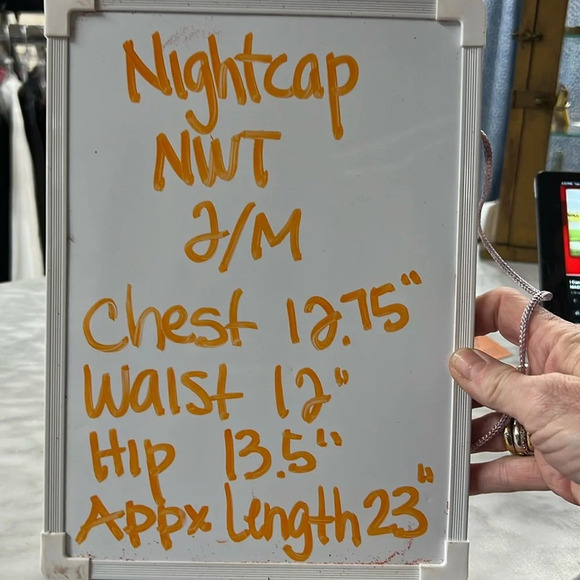 Nightcap
NWT
2/M
Chest 12.75"
Waist 12"
Hip 13.5"
Appx Length 23"